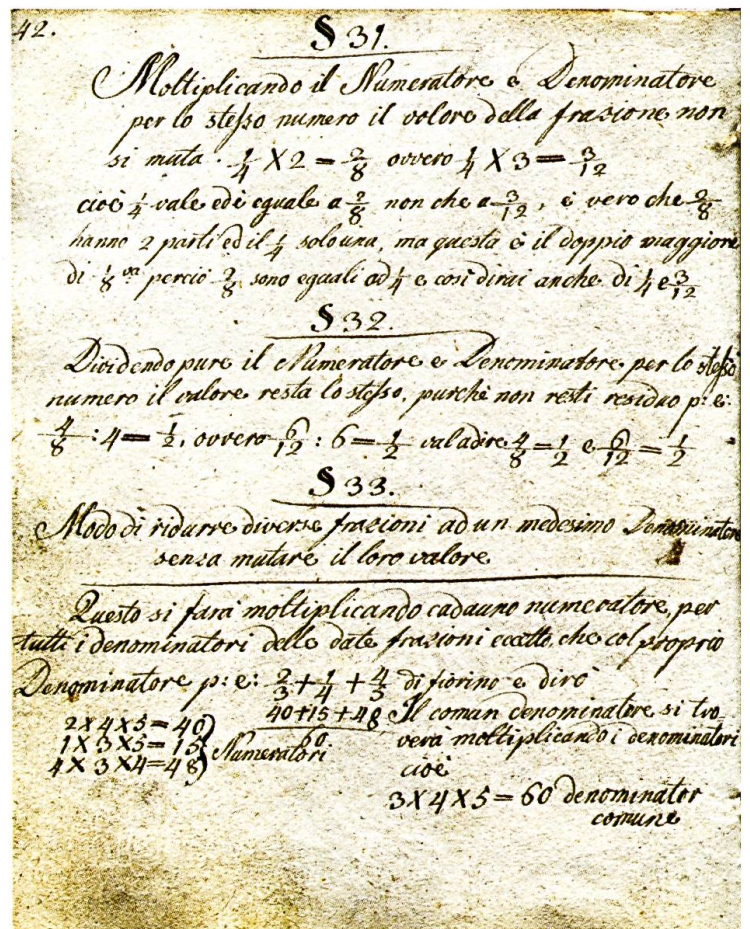 42.
§ 31.
Moltiplicando il Numeratore e Denominatore
per lo stesso numero il valore della frazione non
si muta. 1/4 X 2 = 2/8 ovvero 1/4 X 3 = 3/12
cioè 1/4 vale ed è eguale a 2/8 non che a 3/12, è vero che 2/8
hanno 2 parti ed il 1/4 solo una, ma questa è il doppio maggiore
di 1/8 va perciò 2/8 sono eguali ad 1/4 e così dirai anche di 1/4 e 3/12
§ 32.
Dividendo pure il Numeratore e Denominatore per lo stesso
numero il valore resta lo stesso, purchè non resti residuo p: e:
4/8 : 4 = 1/2, ovvero 6/12 : 6 = 1/2 val a dire 4/8 = 1/2 e 6/12 = 1/2
§ 33.
Modo di ridurre diverse frazioni ad un medesimo Denominatore
senza mutare il loro valore
Questo si farà moltiplicando cadauno numeratore, per
tutti i denominatori delle date frazioni eccetto che col proprio
Denominatore p: e: 2/3 + 1/4 + 4/5 di fiorino e dirò
2 X 4 X 5 = 40
1 X 3 X 5 = 15
4 X 3 X 4 = 48
Numeratori
40 + 15 + 48
60
Il comun denominatore si tro-
verà moltiplicando i denominatori
cioè
3 X 4 X 5 = 60 denominator
comune